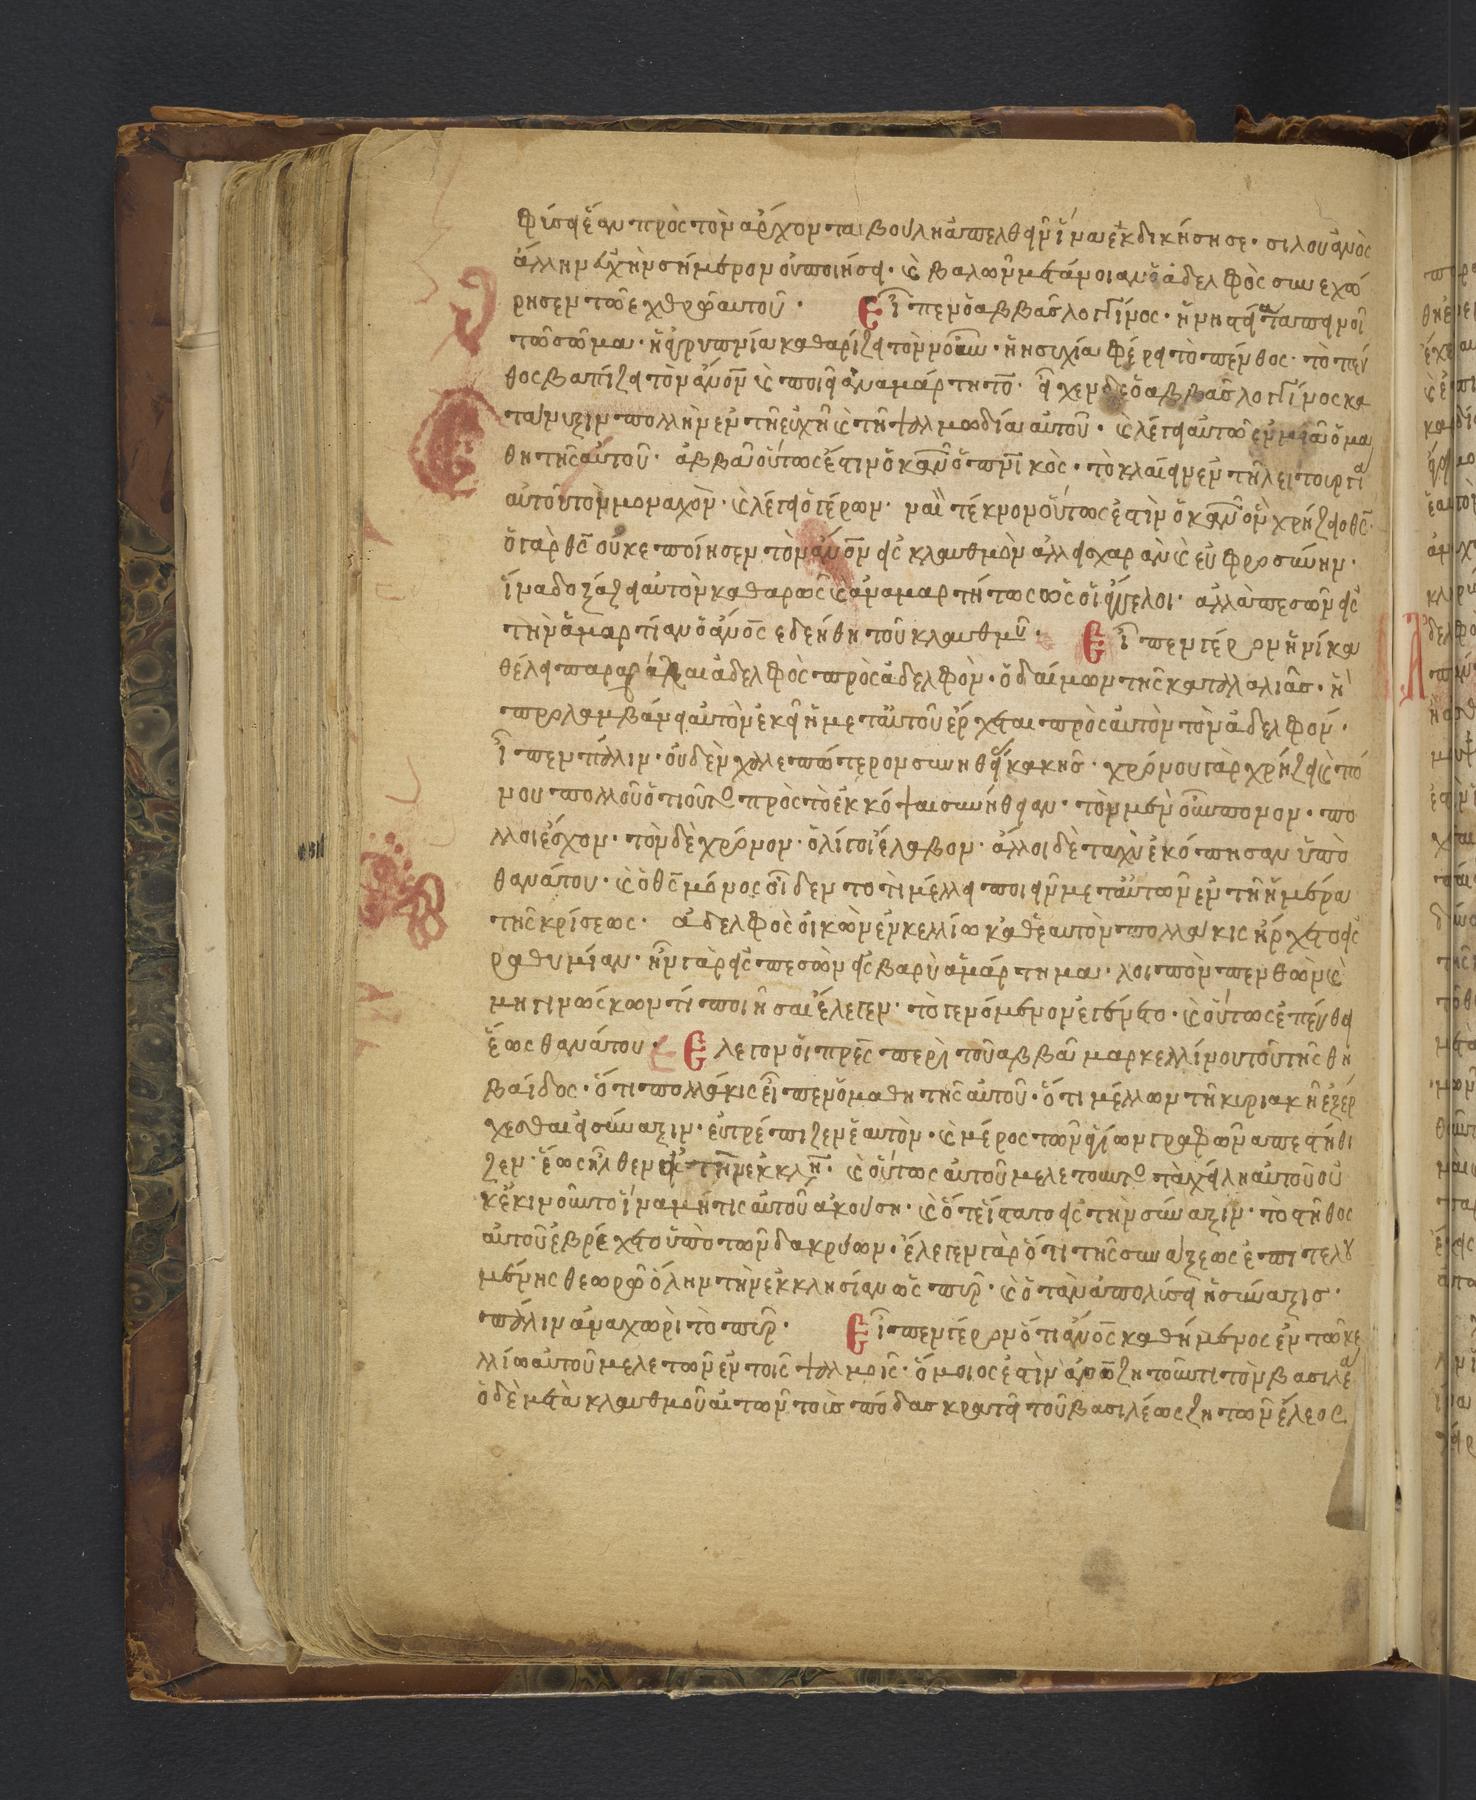 φίσει ἐὰν πρὸς τὸν ἄρχοντα βούλῃ ἀπελθεῖν ἵνα ἐκδικήσῃ σε· σιλουανὸς
ἀλλην μάχην σήμερον οὐ ποιήσει· καὶ βαλὼν μετάνοιαν ὁ ἀδελφὸς συνεχώ
ρησεν τῶ ἐχθρῶ αὐτοῦ· Εἶπεν ὁ ἀββᾶς λογγῖνος· ἡ νηστεία ταπεινοῖ
τῶ σῶμα· ἡ ἀγρυπνία καθαρίζει τὸν νοῦν· ἡ ἡσυχία φέρει τὸ πένθος· τὸ πέν
θος βαπτίζει τὸν ἄνον καὶ ποιεῖ ἀναμάρτητον· εἶχεν δὲ ὁ ἀββᾶς λογγῖνος κα
τάνυξιν πολλὴν ἐν τῆ εὐχῆ καὶ τῆ ψαλμωδία αὐτοῦ· καὶ λέγει αὐτῶ ἐν μιᾶ ὁ μα
θητὴς αὐτοῦ· ἀββᾶ οὕτως ἐστιν ὁ κανὼν ὁ πνικὸς· τὸ κλαίειν ἐν τῆ λειτουργία
αὐτοῦ τὸν μοναχόν· καὶ λέγει ὁ γέρων· ναὶ τέκνον οὕτως ἐστὶν ὁ κανὼν ὃν χρήζει ὁ θς·
ὁ γὰρ θς οὐκ ἐποίησεν τὸν ἄνον εἰς κλαυθμὸν ἀλλ' εἰς χαρὰν καὶ εὐφροσύνην·
ἵνα δοξάζει αὐτὸν καθαρῶς καὶ ἀναμαρτήτως ὡς οἱ ἄγγελοι· ἀλλὰ πεσὼν εἰς
τὴν ἁμαρτίαν ὁ ἄνος ἐδεήθη τοῦ κλαυθμοῦ· Εἶπεν γέρων ἡνίκα
θέλει παρα ἀδελφὸς πρὸς ἀδελφὸν· ὁ δαίμων τῆς καταλαλιᾶς· ἢ
προλαμβάνει αὐτὸν ἐκεῖ ἢ μετ' αὐτοῦ ἔρχεται πρὸς αὐτὸν τὸν ἀδελφόν·
Εἶπεν πάλιν· οὐδὲν χαλεπώτερον συνηθεία κακῆς· χρόνου γὰρ χρήζει καὶ πό
νου πολλοῦ ὁ τοιοῦτος πρὸς τὸ ἐκκόψαι συνήθειαν· τὸν μὲν οὖν πόνον· πο
λλοὶ ἔσχον· τὸν δὲ χρόνον· ὀλίγοι ἔλαβον· ἄλλοι δὲ ταχὺ ἐκόπησαν ὑπὸ
θανάτου· καὶ ὁ θς μόνος οἶδεν το τί μέλλει ποιεῖν μετ' αὐτῶν ἐν τῆ ἡμέρα
τῆς κρίσεως· ἀδελφὸς οἰκῶν ἐν κελλίω καθ' ἑαυτὸν πολλάκις ἤρχετο εἰς
ραθυμίαν· ἦν γὰρ εἰς πεσὼν εἰς βαρὺ ἁμάρτημα· λοιπὸν πενθῶν καὶ
μὴ γινώσκων τί ποιῆσαι ἔλεγεν· τὸ γενόμενον ἐγένετο· καὶ οὕτως ἐπένθει
ἕως θανάτου· Ελεγον οἱ πρες περὶ τοῦ ἀββᾶ μαρκελλίνου τοῦ τῆς θη
βαίδος· ὅτι πολλάκις εἶπεν ὁ μαθητὴς αὐτοῦ· ὅτι μέλλων τῆ κυριακῆ ἐξέρ
χεσθαι εἰς σύναξιν· εὐτρέπιζεν ἑαυτὸν· καὶ μέρος τῶν ἁγίων γραφῶν ἀπεστήθι
ζεν· ἕως ἦλθεν εἰς τὴν ἐκκλην· καὶ οὕτως αὐτοῦ μελετοῦντος τὰ χείλη αὐτοῦ οὐ
κ ἐκινοῦντο ἵνα μή τις αὐτοῦ ἀκούση· καὶ ὅτε ἵστατο εἰς τὴν σύναξιν· τὸ στῆθος
αὐτοῦ ἐβρέχετο ὑπὸ τῶν δακρύων· ἔλεγεν γὰρ ὅτι τῆς συνάξεως ἐπιτελου
μένης θεωρῶ ὅλην τὴν ἐκκλησίαν ὡς πῦρ· καὶ ὅταν ἀπολύσει ἡ σύναξις·
πάλιν ἀναχωρεῖ τὸ πῦρ· Εἶπεν γέρων ὅτι ἄνος καθήμενος ἐν τῶ κε
λλίω αὐτοῦ μελετῶν ἐν τοῖς ψαλμοῖς· ὅμοιος ἐστὶν ἀνω ζητοῦντι τὸν βασιλέα
ὁ δὲ μετὰ κλαυθμοῦ αἰτῶν τοὺς πόδας κρατεῖ τοῦ βασιλέως ζητῶν ἔλεος